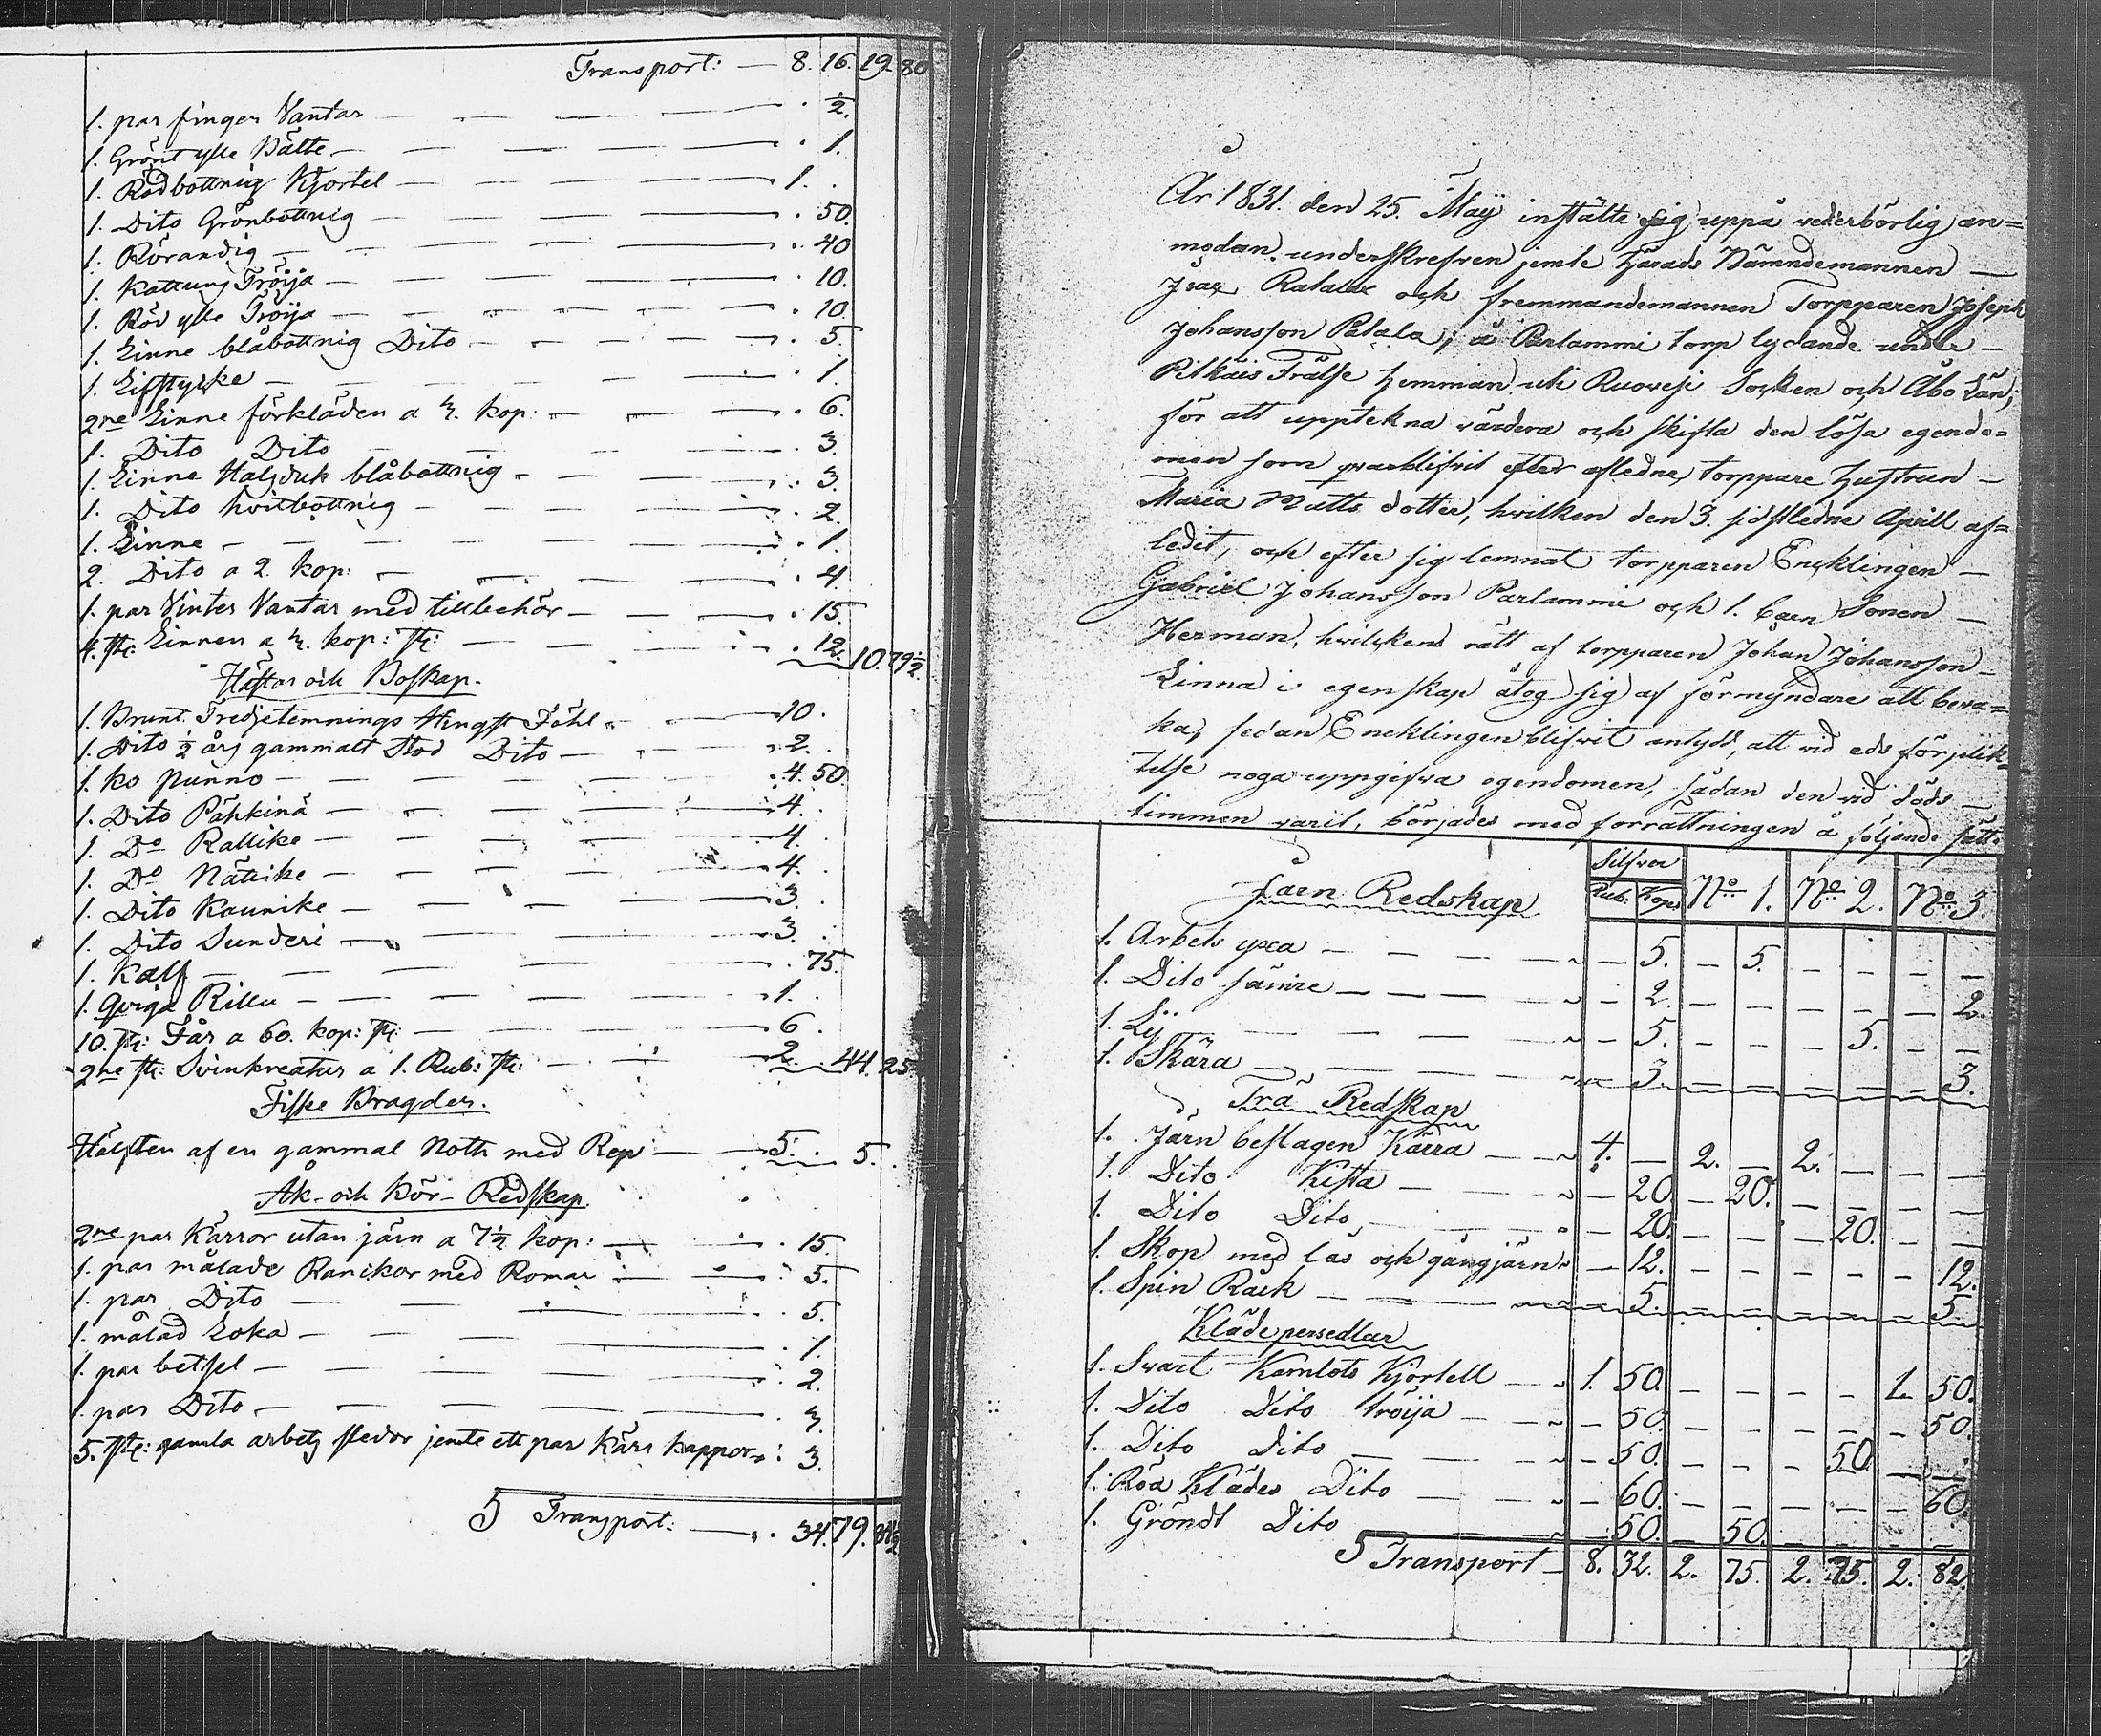 Transport: — 8. 16. 19. 80
1. par finger Vantar — . ½.
1. Grönt ylle Bälte — . 1.
1. Rödbottnig Kjortel — 1. .
1. Dito Grönbottnig — . 50.
1. Rörandig — . 40
1. Kattuns Tröija — . 10.
1. Röd ylle Tröija — . 10.
1. Linne blåbottnig Dito — . 5.
1. Lifstycke — . 1.
2ne Linne förkläden a 3. kop: — . 6.
1. Dito Dito — . 3.
1. Linne Halsduk blåbottnig — . 3.
1. Dito hvitbottnig — . 2.
1. Linne — . 1.
2. Dito a 2. kop: — . 4.
1. par Vinter Vantar med tillbehör — . 15.
4. st: Linnen a 3. kop: st: — . 12. 10. 79½
Hästar och Boskap.
1. Brunt Tredjetemnings Hingst Föhl — 10.
1. Dito ½ års gammalt Stod Dito — 2. .
1. ko punno — . 4. 50.
1. Dito Pähkinä — 4. .
1. Do Rallike — 4. .
1. Do Nättike — 4. .
1. Dito Kaunike — 3. .
1. Dito Sunderi — 3. .
1. Kalf — . 75.
1. Qviga Rillu — 1. .
10. st: Får a 60. kop: st: — 6 .
2ne st: Svinkreatur a 1. Rub: st: — 2. . 44. 25.
Fiske Bragder.
Hälften af en gammal Noth med Rep — 5. . 5. .
Åk- och Kör- Redskap.
2ne par Kärror utan järn a 7½ kop: — . 15.
1. par målade Ranckor med Romar — . 5.
1. par Dito — . 5.
1. målad Loka — . 1.
1. par betsel — . 2.
1. par Dito — . 3.
5. st: gamla arbets sledor jemte ett par Kärr kappor — : 3.
Transport: — . 34. 79.
År 1831. den 25. Maÿ instälte sig uppå vederbörlig an=
modan underskrefven jemte Härads Nämndemannen —
Isac Ratala och fremmandemannen Torpparen Joseph
Johansson Patala, å Parlammi torp lydande unde —
Pitkäis Frälse Hemman uti Ruovesi Socken och Åbo Län;
för att upptekna värdera och skifta den lösa egendo=
men som qvarblifvit efter afledne torppare Hustrun —
Maria Matts dotter, hvilken den 3. sidstledne Aprill af=
ledit, och efter sig lemnat torpparen Encklingen —
Gabriel Johansson Parlammi och 1. barn Sonen —
Herman, hvilckens rätt af torpparen Johan Johansson —
Linna i egenskap åtog sig af förmyndare att beva=
ka, sedan Encklingen blifvit antydd, att vid eds förplik=
telse noga uppgifva egendomen, sådan den vid döds —
timmen varit, börjades med förrättningen å följande sätt.
Järn Redskap Silfver Rub: Kop: No 1. No 2. No 3
1. Arbets yxa — 5. — 5. — — — —
1. Dito sämre — 2. — — — — — 2.
1. Lij — 5. — — — 5. — —
1. Skära — 3. — — — — — 3.
Trä Redskap
1. Järn beslagen Kärra — 4. — 2. — 2. — — —
1. Dito Kista — 20. — 20. — — — —
1. Dito Dito — 20. — — — 20. — —
1. Skop med lås och gångjärn — 12. — — — — — 12.
1. Spin Råck — 5. — — — — — 5.
Klädepersedlar
1. Svart Kamlots Kjortell — 1. 50. — — — — 1. 50.
1. Dito Dito Tröija — 50. — — — — — 50.
1. Dito Dito — 50. — — — 50. — —
1. Röd Klädes Dito — 60. — — — — — 60.
1. Gröndt Dito — 50. — 50. — — — —
Transport — 8. 32. 2. 75. 2. 75. 2. 82.